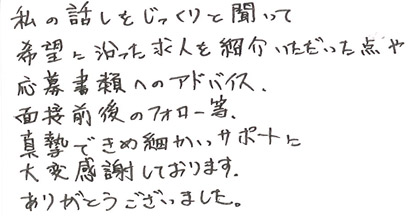 私の話しをじっくりと聞いて
希望に沿った求人を紹介いただいた点や
応募書類へのアドバイス、
面接前後のフォロー等、
真摯できめ細かいサポートに
大変感謝しております。
ありがとうございました。